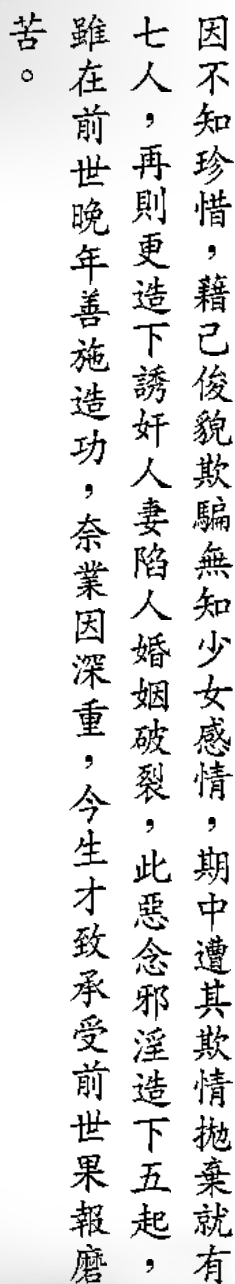 因不知珍惜，藉己俊貌欺騙無知少女感情，期中遭其欺情拋棄就有
七人，再則更造下誘奸人妻陷人婚姻破裂，此惡念邪淫造下五起，
雖在前世晚年善施造功，奈業因深重，今生才致承受前世果報磨
苦。